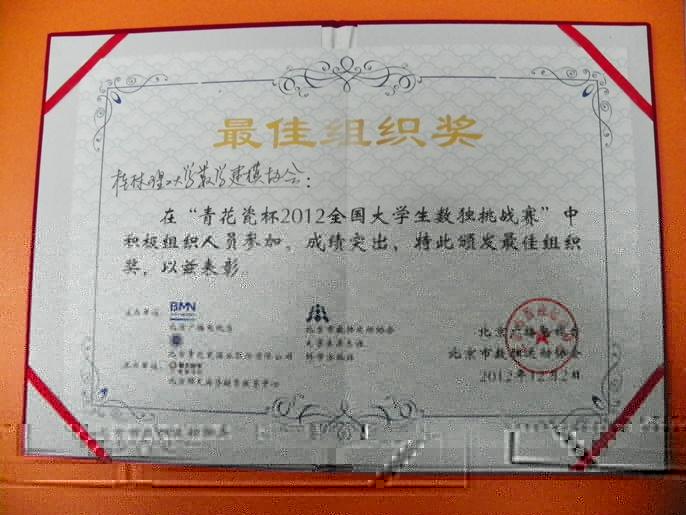 最佳组织奖
桂林理工大学数学建模协会：
在“青花瓷杯2012全国大学生数独挑战赛”中
积极组织人员参加，成绩突出，特此颁发最佳组织
奖，以兹表彰。
主办单位：
BMN
北京广播电视台
北京市数独运动协会
科学出版社
北京市数独运动协会
2012年12月2日